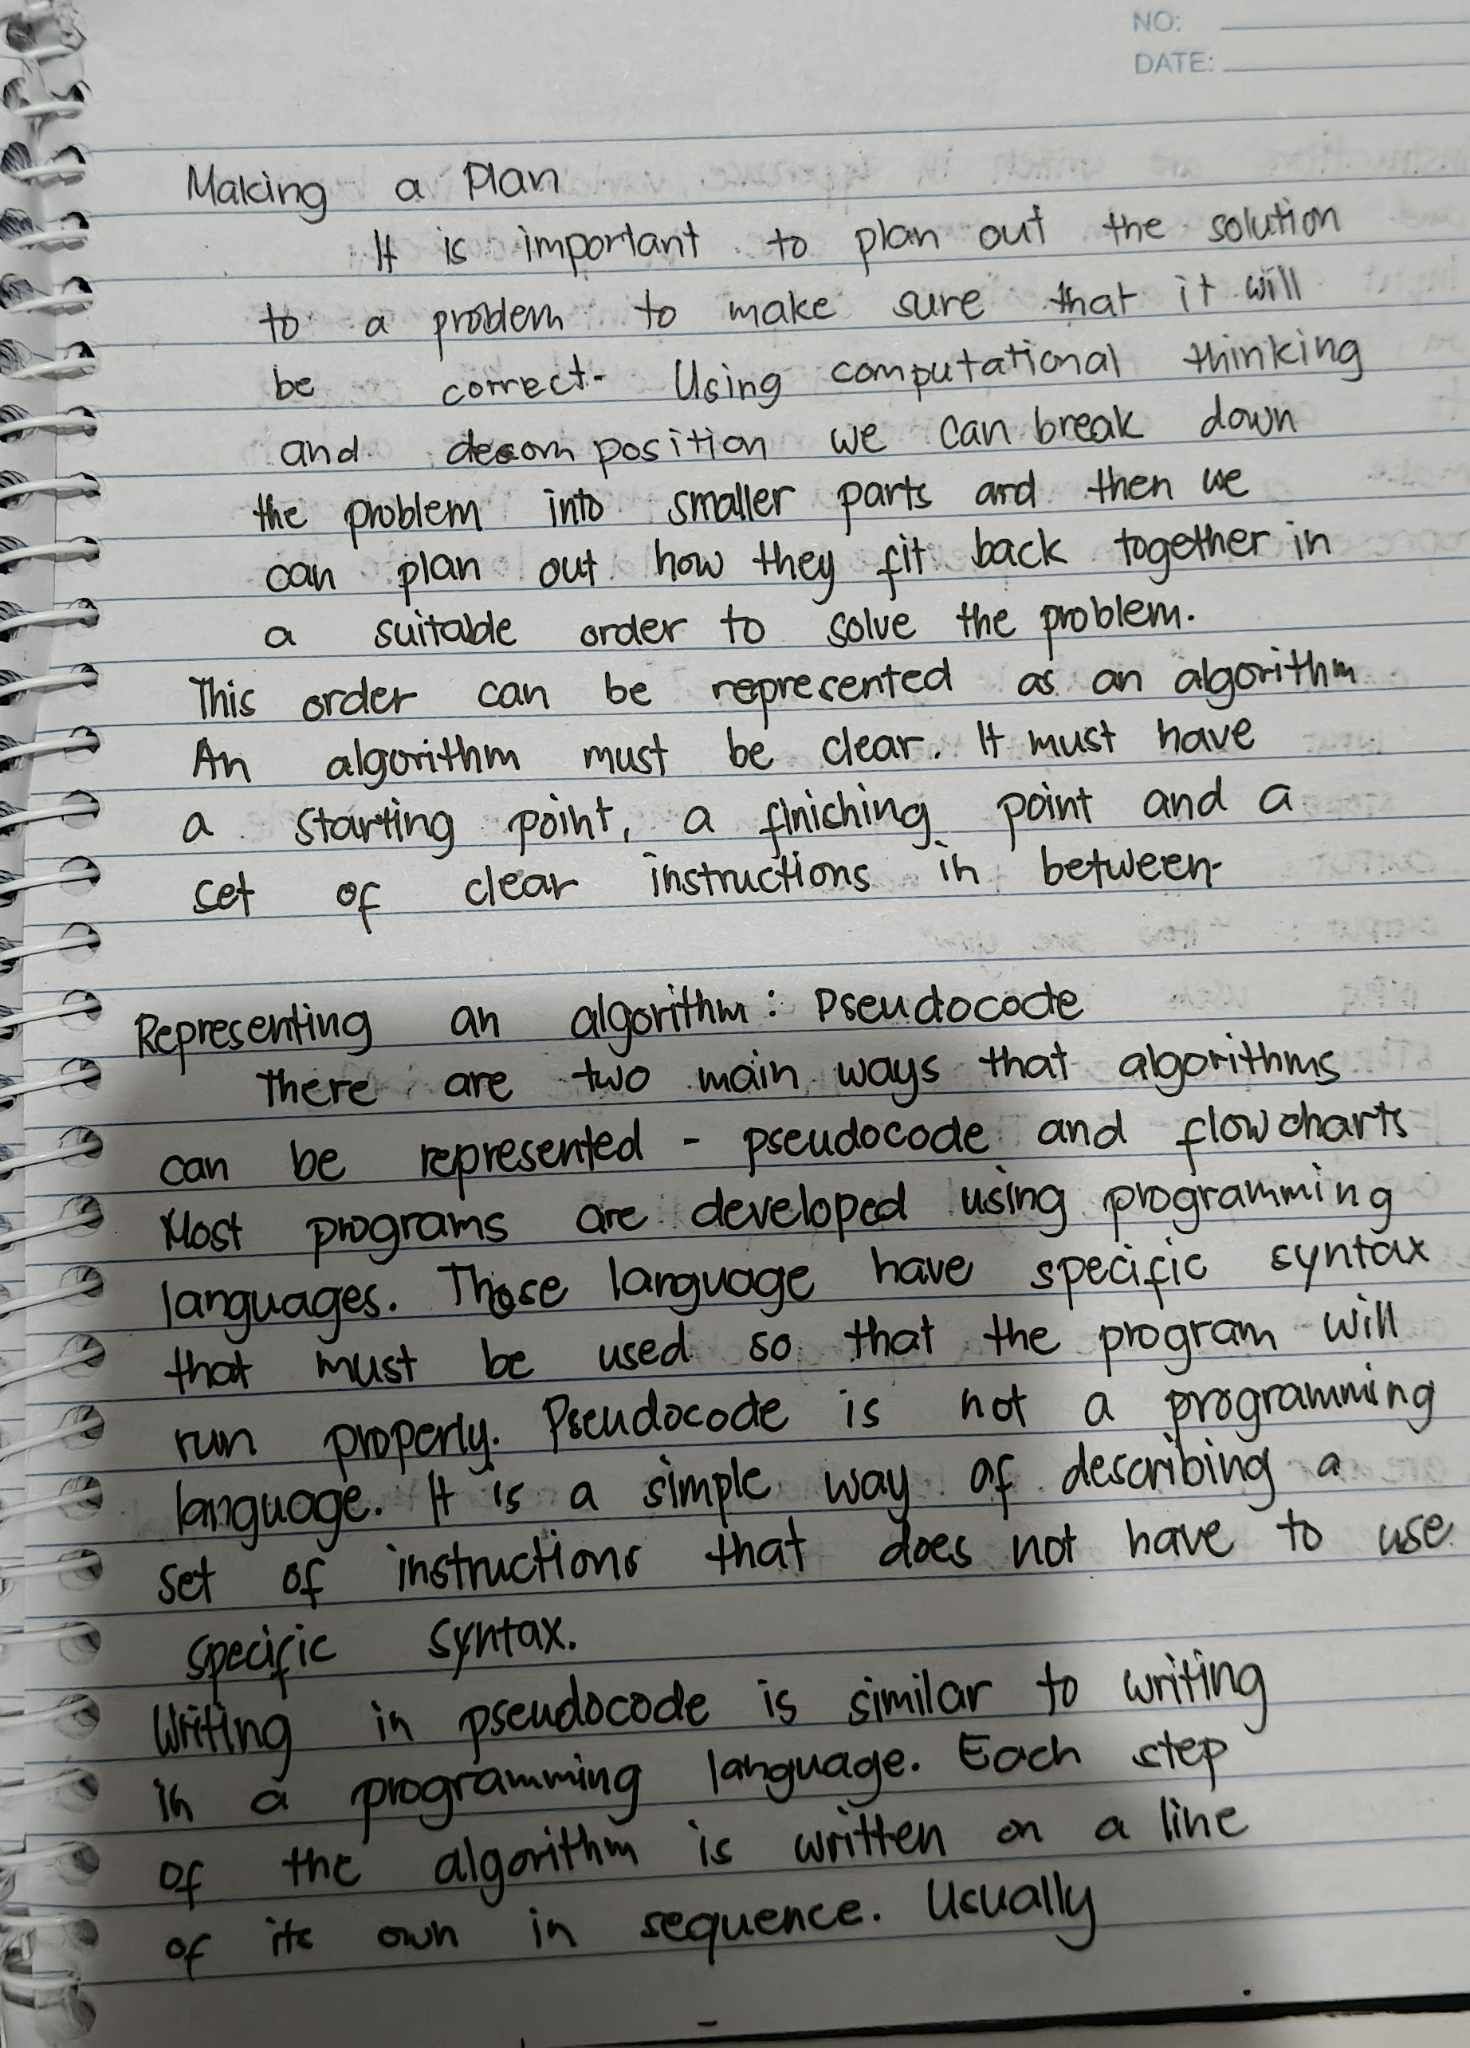 NO:
DATE:
Making a Plan
It is important to plan out the solution
to a problem to make sure that it will
be correct. Using computational thinking
and decomposition we can break down
the problem into smaller parts and then we
can plan out how they fit back together in
a suitable order to solve the problem.
This order can be represented as an algorithm
An algorithm must be clear. It must have
a starting point, a finiching point and a
set of clear instructions in between.
Representing an algorithm: Pseudocode
There are two main ways that algorithms
can be represented - pseudocode and flowcharts
Most programs are developed using programming
languages. Those language have specific syntax
that must be used so that the program will
run properly. Pseudocode is not a programming
language. It is a simple way of describing a
set of instructions that does not have to use
specific syntax.
Writing in pseudocode is similar to writing
in a programming language. Each step
of the algorithm is written on a line
of its own in sequence. Usually